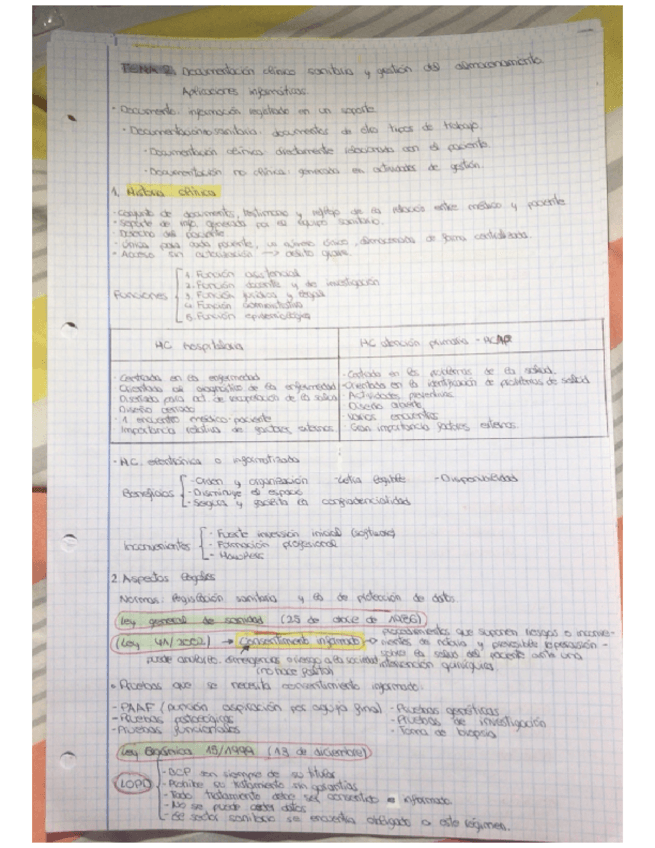 TEMA 2. Documentación clínico sanitaria y gestión del almacenamiento.
Aplicaciones informáticas.
· Documento: información registrada en un soporte
· Documentación sanitaria: documentos de dos tipos de trabajo.
· Documentación clínica: directamente relacionada con el paciente.
· Documentación no clínica: generada en actividades de gestión.
1. Historia clínica
· Conjunto de documentos, testimonio y reflejo de la relación entre médico y paciente
· Soporte de info. generada por el equipo sanitario.
· Derecho del paciente
· Única para cada paciente, un número único, almacenada de forma centralizada.
· Acceso sin autorización → delito grave.
Funciones
1. Función asistencial
2. Función docente y de investigación
3. Función jurídica y legal
4. Función administrativa
5. Función epidemiológica
HC hospitalaria
HC atención primaria - HCAP
· Centrada en la enfermedad
Orientada al diagnóstico de la enfermedad
Diseñada para act. de recuperación de la salud
Diseño cerrado
· 1 encuentro médico-paciente
Importancia relativa de factores externos
· Centrada en los problemas de la salud.
· Orientada en la identificación de problemas de salud
· Actividades preventivas
Diseño abierto
Varios encuentros
Gran importancia factores externos
· HC. electrónica o informatizada
Beneficios
- Orden y organización
- Letra legible
- Disponibilidad
- Disminuye el espacio
- Segura y facilita la confidencialidad
Inconvenientes
- Fuerte inversión inicial (software)
- Formación profesional
2. Aspectos legales
Normas: legislación sanitaria y la de protección de datos.
Ley general de sanidad (25 de abril de 1986)
(Ley 41/2002) → Consentimiento informado → procedimientos que suponen riesgos o inconve-
nientes en notoria y previsible repercusión
sobre la salud del paciente ante una
intervención quirúrgica
(no hace falta)
· Pruebas que se necesita consentimiento informado.
- PAAF (punción aspiración por aguja fina)
- Pruebas genéticas
- Pruebas
- Pruebas de investigación
- Pruebas funcionales
- Toma de biopsia
Ley Orgánica 15/1999 (13 de diciembre)
LOPD
- DCP son siempre de su titular
- Prohíbe su tratamiento sin garantías
- Todo tratamiento debe ser consentido e informado
- No se puede ceder datos
- El sector sanitario se encuentra obligado a este régimen.